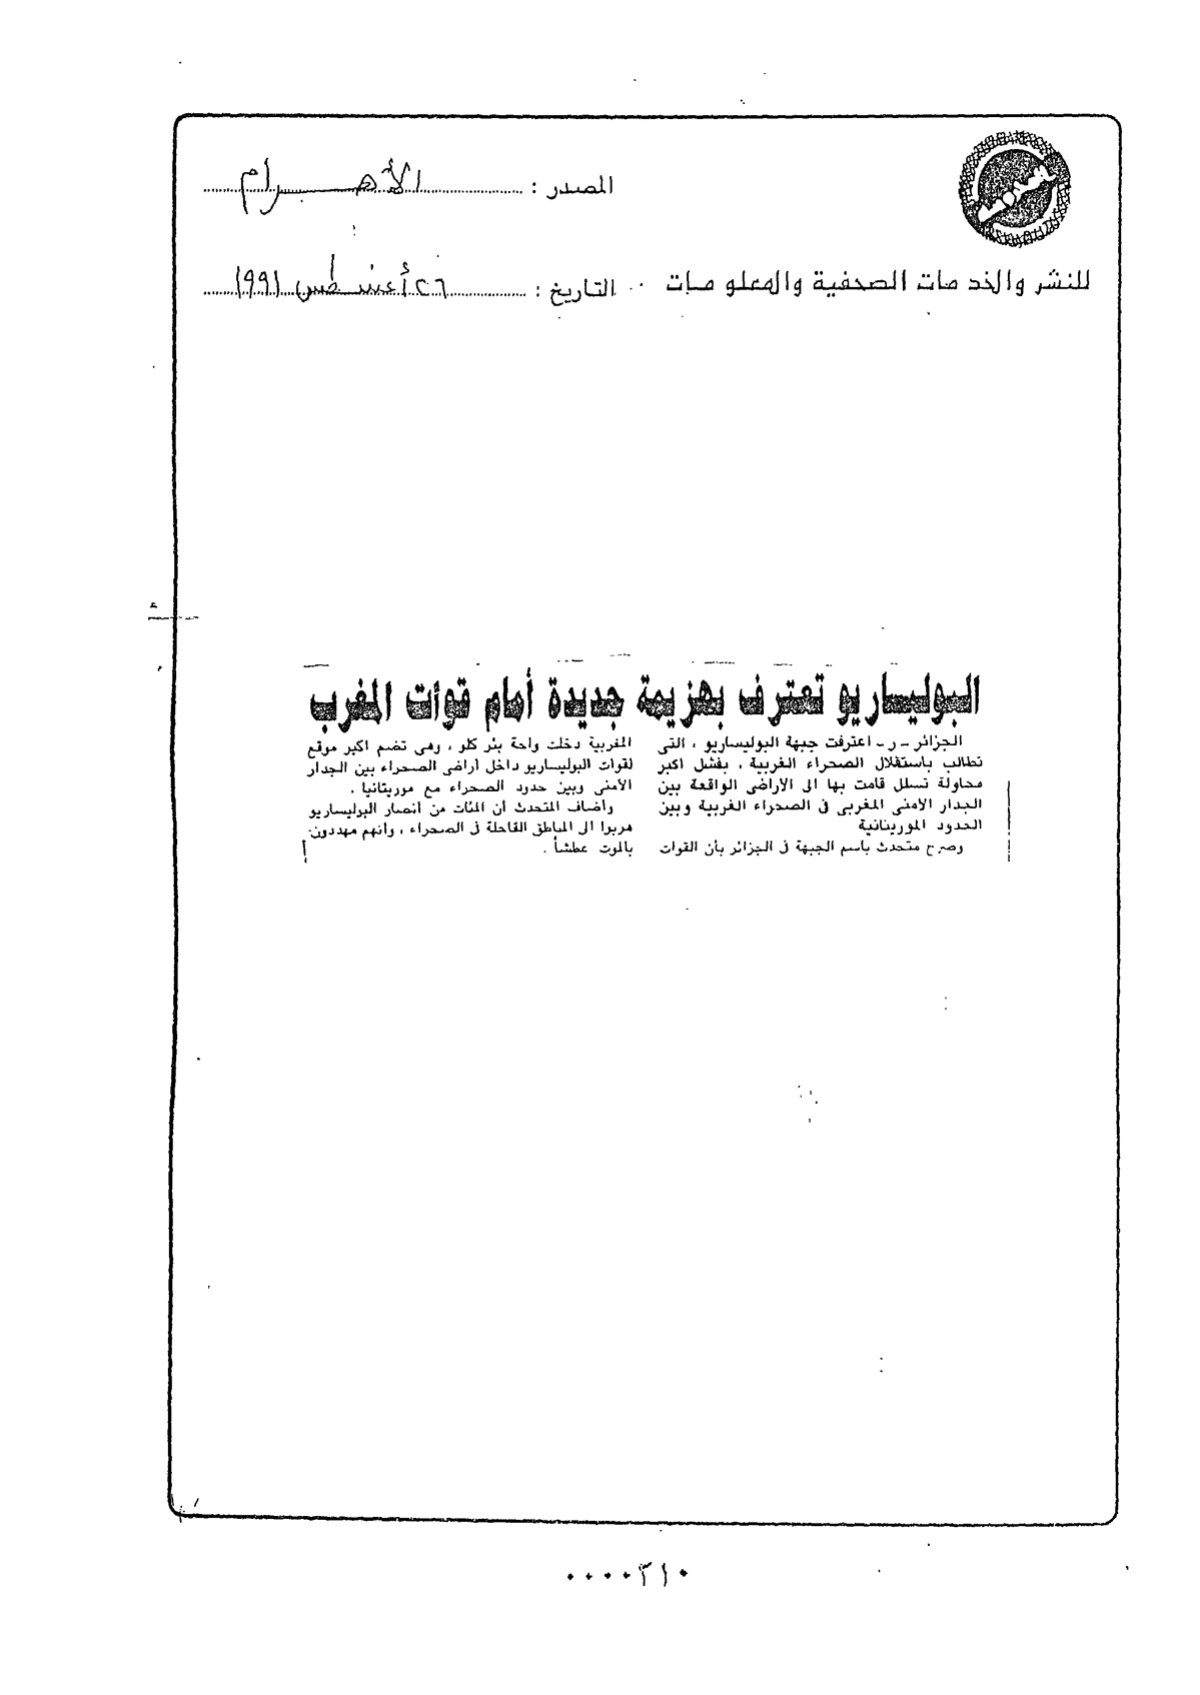 المصدر : الأهرام
للنشر والخدمات الصحفية والمعلومات
التاريخ : ٢٦ أغسطس ١٩٩١
البوليساريو تعترف بهزيمة جديدة أمام قوات المغرب
الجزائر ـ ر ـ اعترفت جبهة البوليساريو ، التى
تطالب باستقلال الصحراء الغربية ، بفشل اكبر
محاولة تسلل قامت بها الى الاراضى الواقعة بين
الجدار الامنى المغربى فى الصحراء الغربية وبين
الحدود الموريتانية
وصرح متحدث باسم الجبهة فى الجزائر بأن القوات
المغربية دخلت واحة بئر كلو ، وهى تضم اكبر موقع
لقوات البوليساريو داخل أراضى الصحراء بين الجدار
الأمنى وبين حدود الصحراء مع موريتانيا .
وأضاف المتحدث أن المئات من أنصار البوليساريو
هربوا الى المناطق القاحلة فى الصحراء ، وأنهم مهددون
بالموت عطشاً .